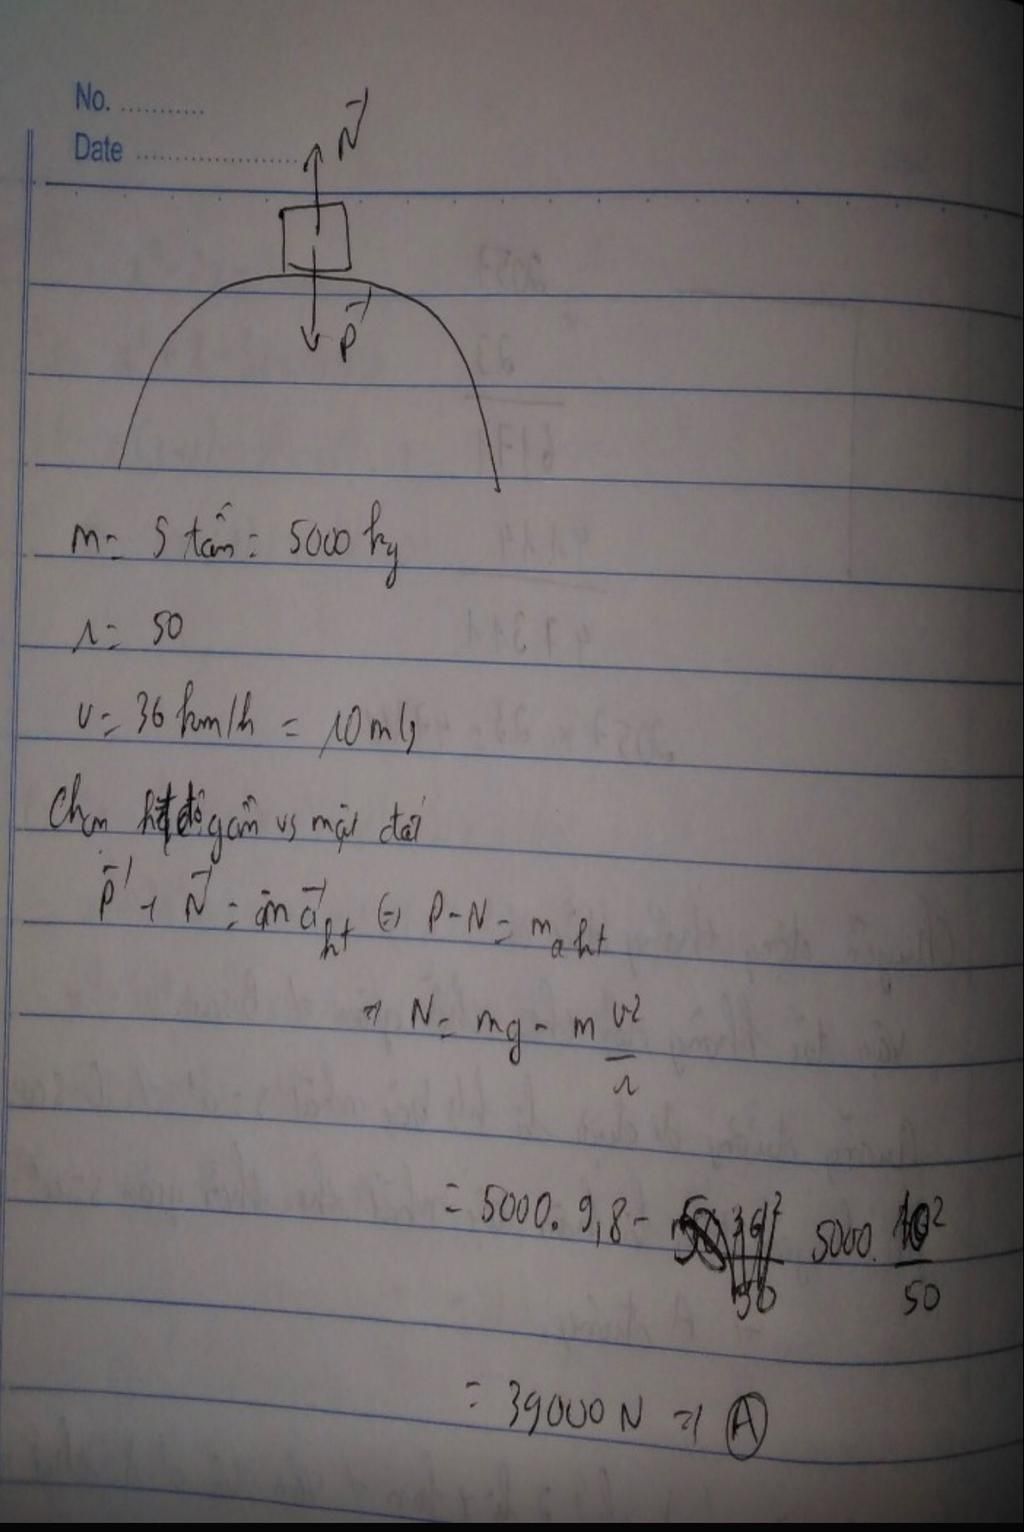 No. ...........
Date .....................
N⃗
P⃗
m = 5 tấn = 5000 kg
r = 50
v = 36 km/h = 10 m/s
Chọn hệ gắn vs mặt đất
P⃗ + N⃗ = m a⃗ht ⇔ P - N = maht
⇒ N = mg - m v²/r
= 5000. 9,8 - 5000. 10²/50
= 39000 N ⇒ A